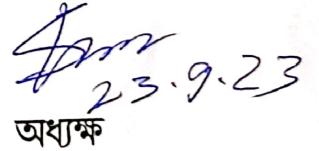 23.9.23
অধ্যক্ষ